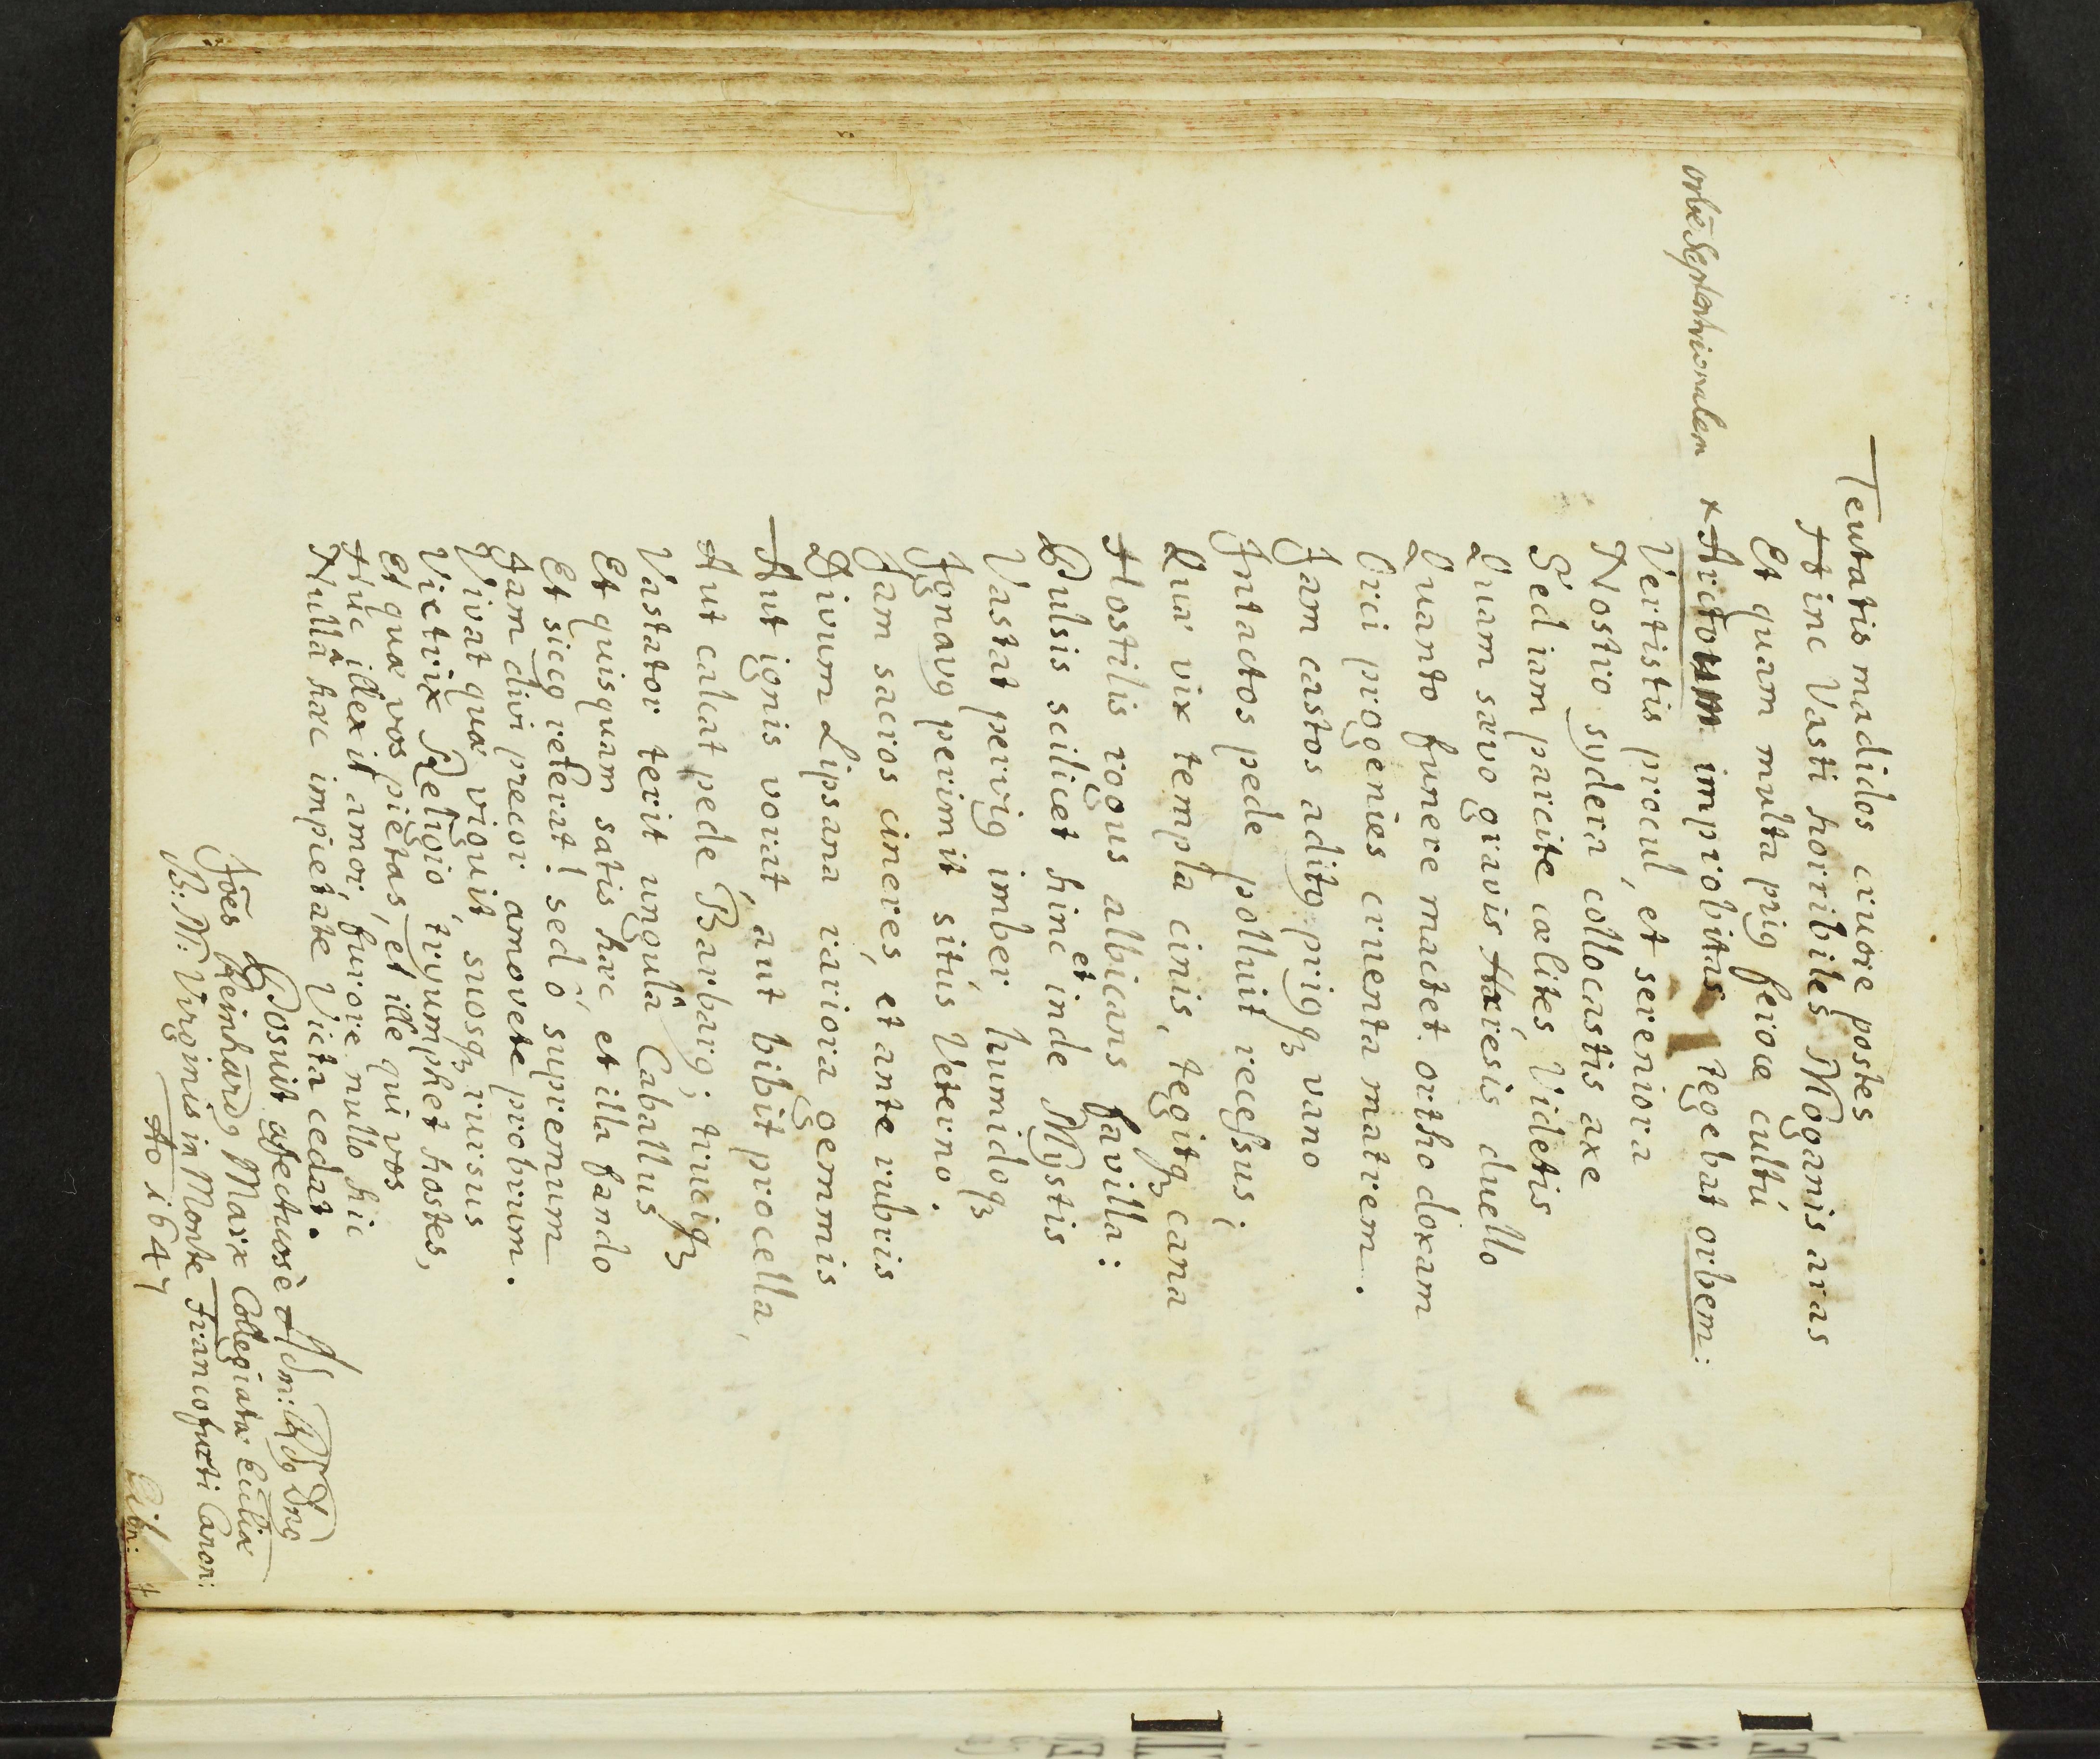 Teutatis madidos cruore postes
Hinc Vasti horribiles Moganis aras
Et quam multa prius feroæ cultú
orbē Septentrionalem × Arctoum improbitas tegebat orbem:
Vertistis procul, et sereniora
Nostro sydera collocastis axe
Sed iam parcite cælites, Videtis
Quam sævo gravis Hæresis duello
Quanto funere mactet orthodoxam
Orci progenies cruenta matrem.
Jam castos aditus priusqꝫ vano
Intactos pede polluit recessus;
Quæ vix templa cinis, tegitqꝫ cana
Hostilis rogus albicans favilla:
Pulsis scilicet hinc et inde Mystis
Vastat pervius imber, humidoqꝫ
Ignavus perimit sitús Veterno.
Jam sacros cineres, et ante rubris
Divum Lipsana rariora gemmis
Aut ignis vorat, aut bibit procella,
Aut calcat pede Barbarus; truciqꝫ
Vastator terit ungulâ Caballus
Et quisquam satis hæc, et illa fando
Et siccus referat! sed ó supremum
Jam divi precor amovete probrum.
Vivat quæ viguit, suosqꝫ rursus
Victrix Religio, tryumphet hostes,
Et quæ vos piêtas, et ille qui vos
Húc illexit amor, furore nullo hic
Nullâ hác impietate Victa cedat.
Posuit affectuosè Adm: Rdus Dns
Joēs Reinhardus Marx Collegiatæ Eccliæ
B: M: Virginis in Monte Francofurti Canon:
Ao 1647